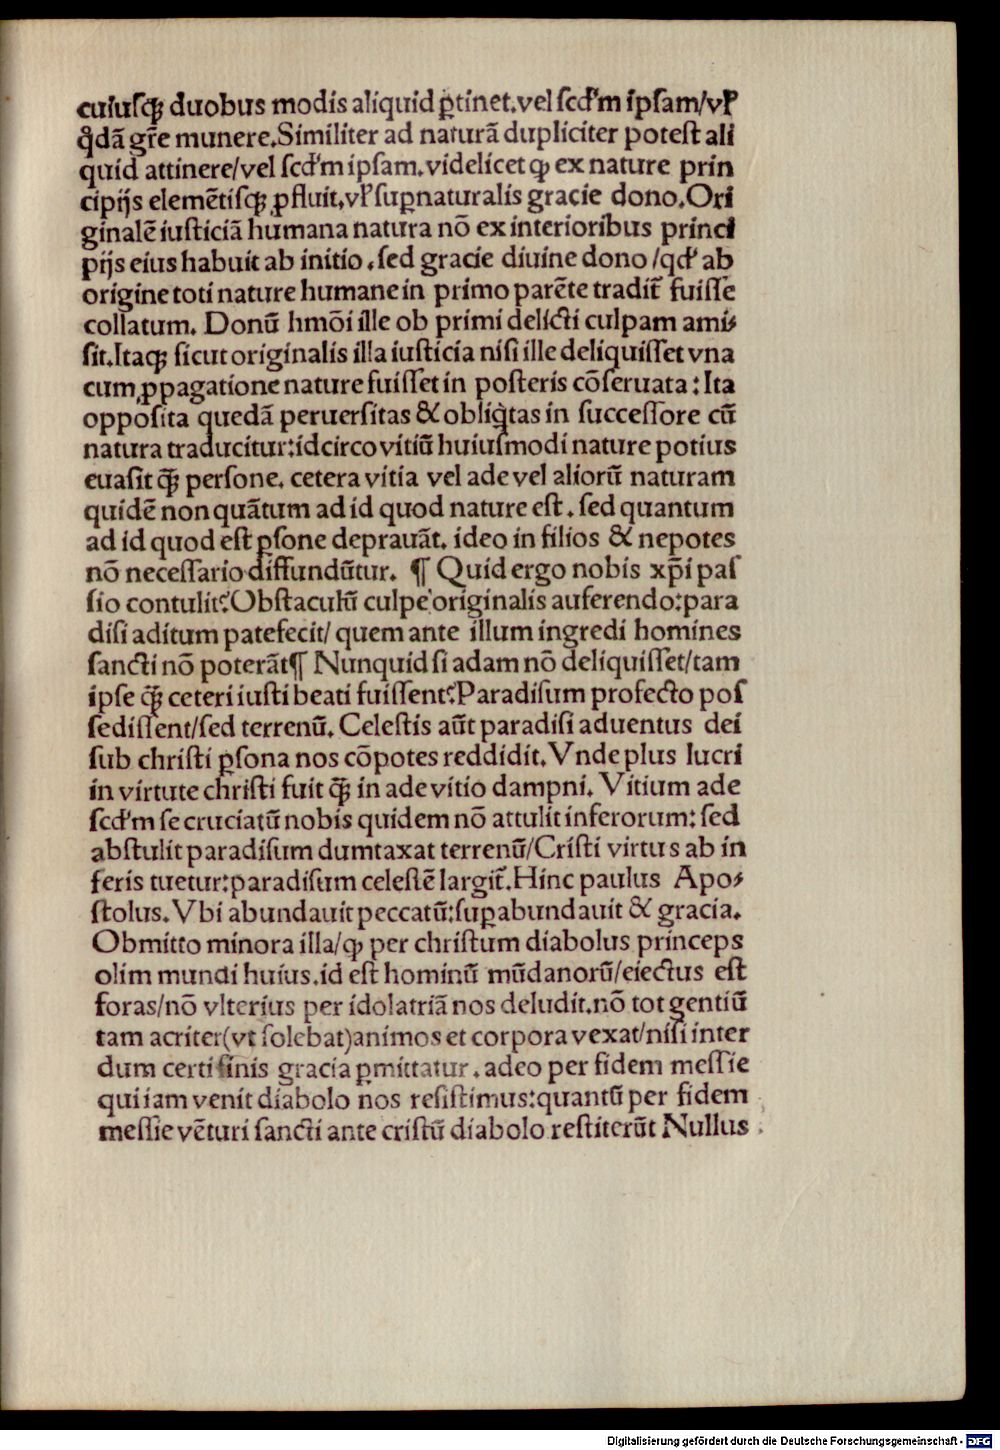 cuiuſqꝫ duobus modis aliquid ꝑtinet.vel ſcd'm ipſam/vl'
q̊dã gr̃e munere.Similiter ad naturã dupliciter poteſt ali
quid attinere/vel ſcd'm ipſam.videlicet ꝙ ex nature prin
cipijs elemẽtiſqꝫ ꝓfluit.vl' ſuꝑnaturalis gracie dono.Ori
ginalẽ iuſticiã humana natura nõ ex interioribus princi
pijs eius habuit ab initio.ſed gracie diuine dono/qd' ab
origine toti nature humane in primo parẽte tradit̃ fuiſſe
collatum. Donũ hmõi ille ob primi delicti culpam ami⸗
ſit.Itaqꝫ ſicut originalis illa iuſticia niſi ille deliquiſſet vna
cum ꝓpagatione nature fuiſſet in poſteris cõſeruata:Ita
oppoſita quedã peruerſitas & obliq̊tas in ſucceſſore cũ
natura traducitur:idcirco vitiũ huiuſmodi nature potius
euaſit q̃ꝫ perſone. cetera vitia vel ade vel aliorũ naturam
quidẽ non quãtum ad id quod nature eſt. ſed quantum
ad id quod eſt ꝑſone deprauãt. ideo in filios & nepotes
nõ neceſſario diffundũtur. ¶ Quid ergo nobis xp̃i paſ
ſio contulit?Obſtaculũ culpe originalis auferendo:para
diſi aditum patefecit/quem ante illum ingredi homines
ſancti nõ poterãt¶ Nunquid ſi adam nõ deliquiſſet/tam
ipſe q̃ꝫ ceteri iuſti beati fuiſſent?Paradiſum profecto poſ
ſediſſent/ſed terrenũ. Celeſtis aũt paradiſi aduentus dei
ſub chriſti ꝑſona nos cõpotes reddidit. Vnde plus lucri
in virtute chriſti fuit q̃ꝫ in ade vitio dampni. Vitium ade
ſcd'm ſe cruciatũ nobis quidem nõ attulit inferorum:ſed
abſtulit paradiſum dumtaxat terrenũ/Criſti virtus ab in
feris tuetur:paradiſum celeſtẽ largit̃.Hinc paulus Apo⸗
ſtolus.Vbi abundauit peccatũ:ſuꝑabundauit & gracia.
Obmitto minora illa/ꝙ per chriſtum diabolus princeps
olim mundi huius.id eſt hominũ mũdanorũ/eiectus eſt
foras/nõ vlterius per idolatriã nos deludit.nõ tot gentiũ
tam acriter(vt ſolebat)animos et corpora vexat/niſi inter
dum certi finis gracia ꝑmittatur. adeo per fidem meſſie
qui iam venit diabolo nos reſiſtimus:quantũ per fidem
meſſie vẽturi ſancti ante criſtũ diabolo reſtiterũt Nullus
Digitalisierung gefördert durch die Deutsche Forschungsgemeinschaft - DFG